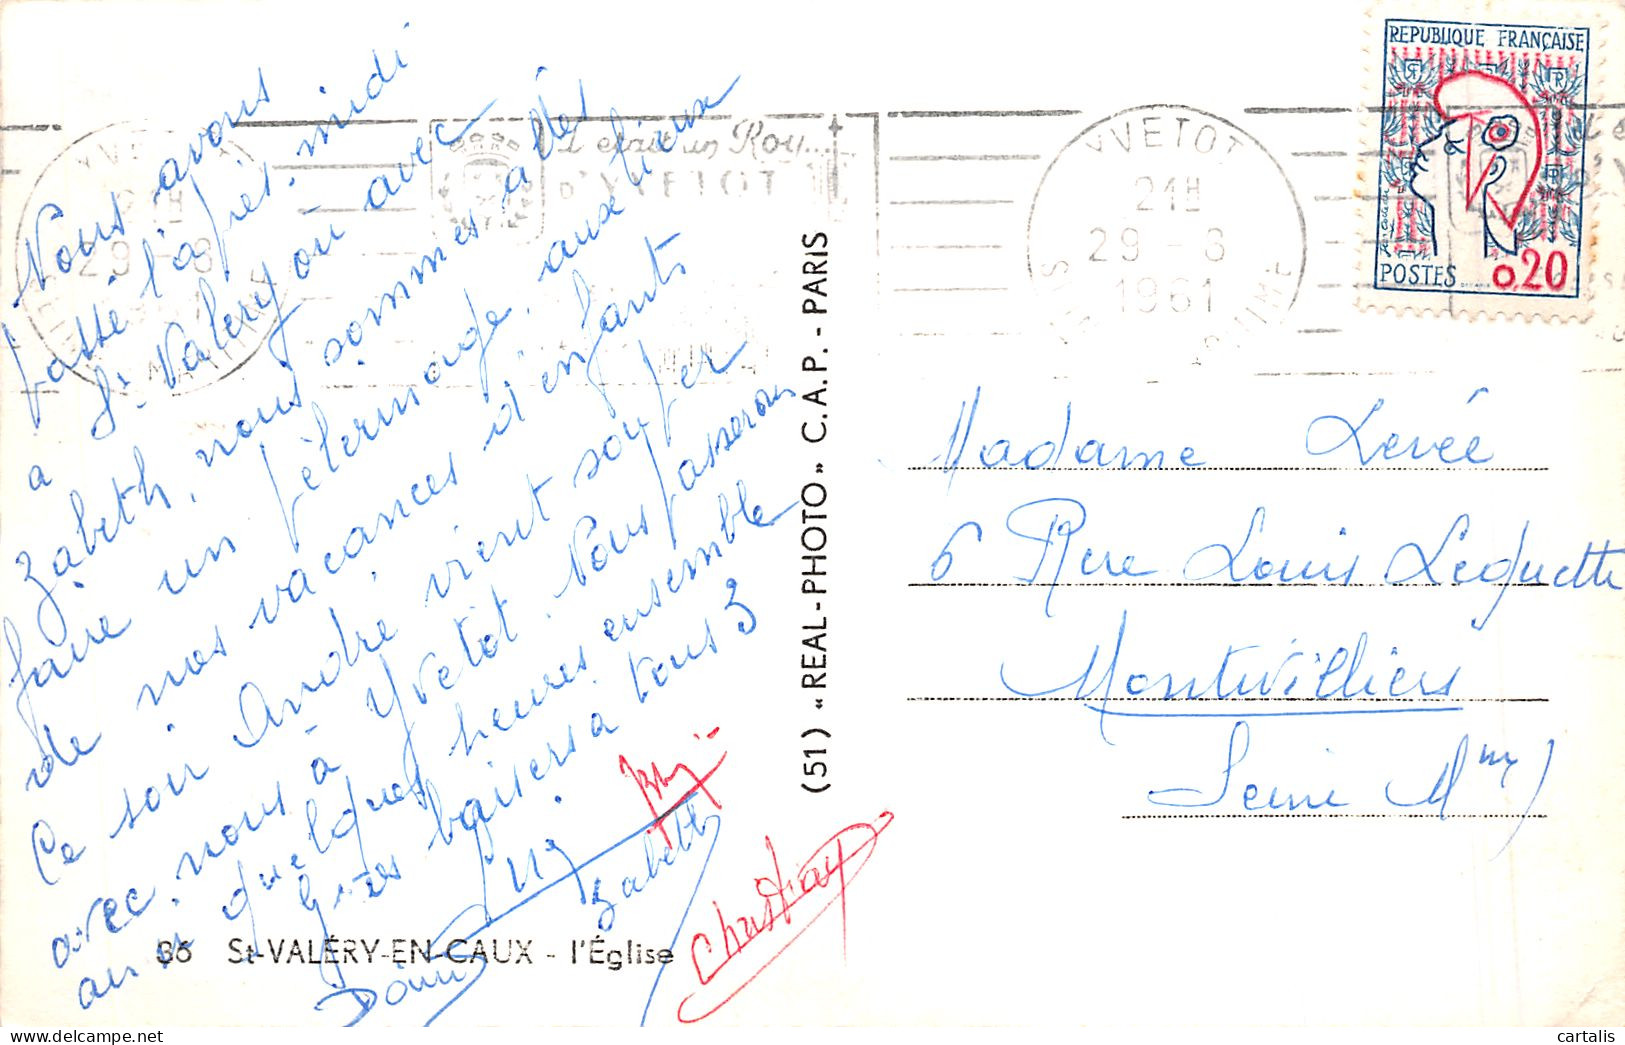 Nous avons
passé l'après-midi
a St Valery où avec
Zabeth, nous sommes allés
faire un pèlerinage aux lieux
de nos vacances d'enfants
Ce soir André vient souper
avec nous à Yvetot. Nous passerons
ainsi quelques heures ensemble
Gros baisers à tous 3
Zabeth
Christian
86 St-VALÉRY-EN-CAUX - l'Église
(51) « REAL-PHOTO » C.A.P. - PARIS
YVETOT
29 - 8
MARITIME
Il était un Roy....
D'YVETOT
YVETOT
21H
29 - 8
1961
SEINE MARITIME
REPUBLIQUE FRANÇAISE
RF
POSTES
0,20
Madame Levée
6 Rue Louis Lequette
Montivilliers
Seine Mme
cartalis